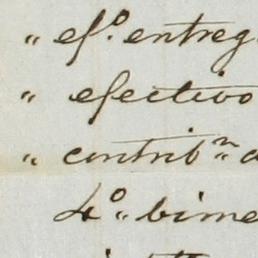 " ef.º entreg
" efectivo
" contrib.ⁿ
4.º bime